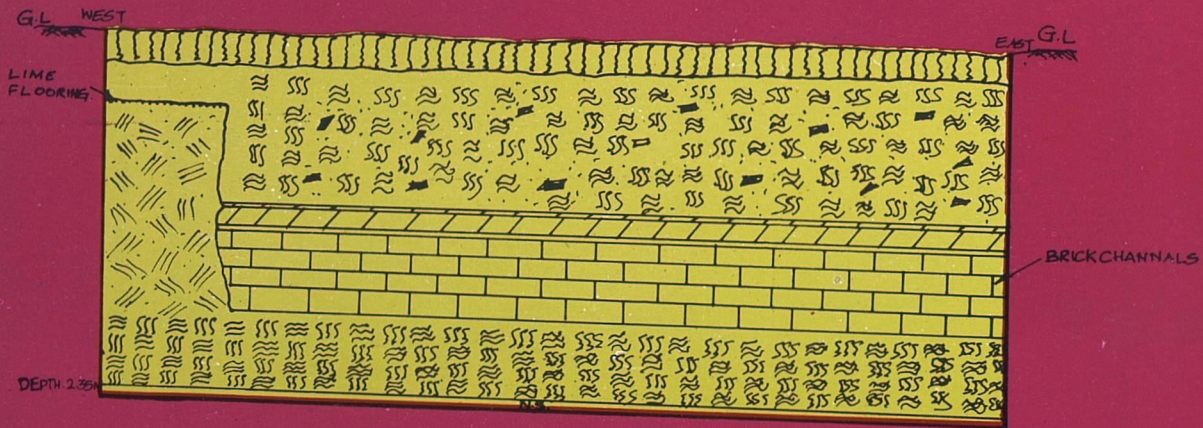 G.L WEST
EAST G.L
LIME
FLOORING
BRICK CHANNALS
DEPTH 2.35M
N.S.